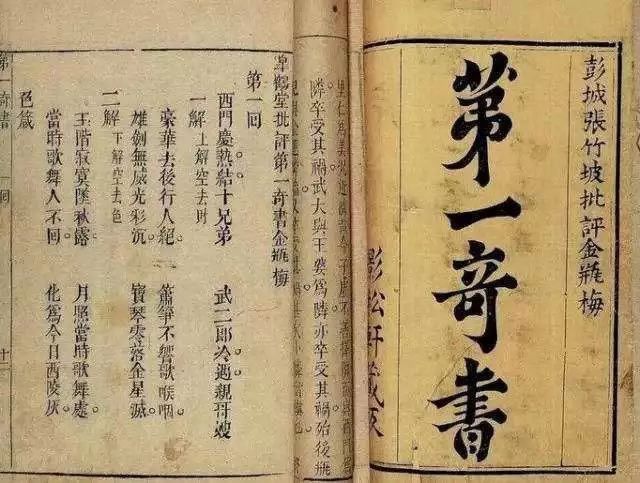 彭城張竹坡批評金瓶梅
第一奇書
影松軒藏板
隣卒受其禍武大與王婆為隣亦卒受其禍殆後瓶
皐鶴堂批評第一奇書金瓶梅
第一回
西門慶熱結十兄弟 武二郎冷遇親哥嫂
一解 上解空去財
豪華去後行人絕 簫箏不響歌喉咽
雄劍無威光彩沉 寶琴零落金星滅
二解 下解空去色
玉階寂寞墜秋露 月照當時歌舞處
當時歌舞人不回 化為今日西陵灰
色箴
第一奇書